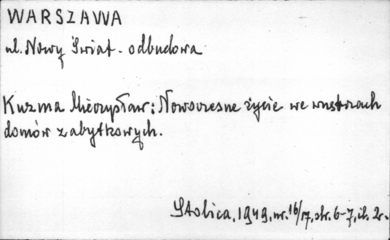 WARSZAWA
ul. Nowy Świat - odbudowa
Kuzma Mieczysław: Nowoczesne życie we wnętrzach
domów zabytkowych.
Stolica, 1949, nr. 16/17, str. 6-7, il. 2.